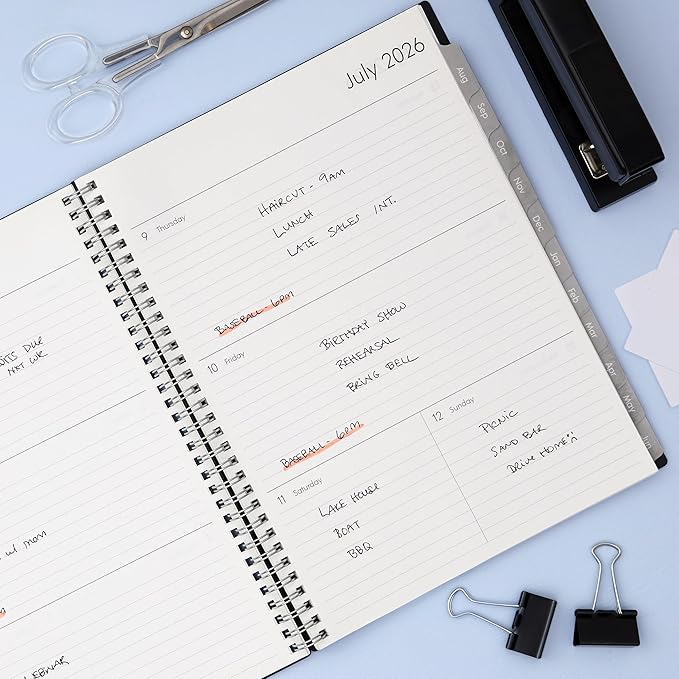 July 2026
9 Thursday
HAIRCUT - 9AM
LUNCH
LATE SALES INT.
BASEBALL - 6PM
10 Friday
BIRTHDAY SHOW
REHEARSAL
BRING BELL
BASEBALL - 6PM
11 Saturday
LAKE HOUSE
BOAT
BBQ
12 Sunday
PICNIC
SAND BAR
DRIVE HOME
Aug
Sep
Oct
Nov
Dec
Jan
Feb
Mar
Apr
May
Jun
DUE
NXT WK
w/ mom